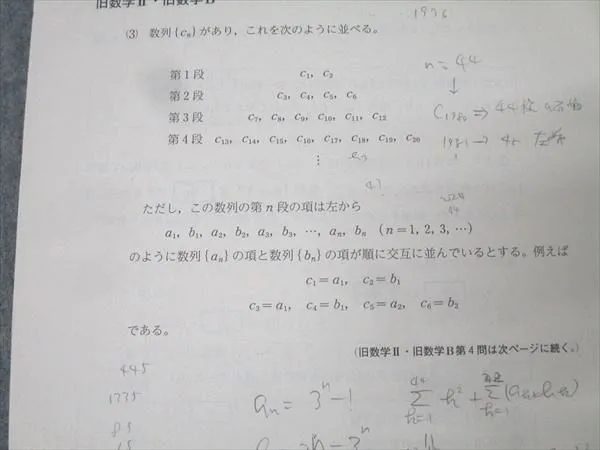 旧数学Ⅱ・旧数学B
(3) 数列{cₙ}があり，これを次のように並べる。
第1段 c₁, c₂
第2段 c₃, c₄, c₅, c₆
第3段 c₇, c₈, c₉, c₁₀, c₁₁, c₁₂
第4段 c₁₃, c₁₄, c₁₅, c₁₆, c₁₇, c₁₈, c₁₉, c₂₀
⋮
n = 44
↓
C₁₉₈₀ ⇒ 44段
1981 →
ただし，この数列の第 n 段の項は左から
a₁, b₁, a₂, b₂, a₃, b₃, …, aₙ, bₙ (n＝1, 2, 3, …)
のように数列{aₙ}の項と数列{bₙ}の項が順に交互に並んでいるとする。例えば
c₁＝a₁, c₂＝b₁
c₃＝a₁, c₄＝b₁, c₅＝a₂, c₆＝b₂
である。
(旧数学Ⅱ・旧数学B第4問は次ページに続く。)
445
1335
aₙ = 3ⁿ−1